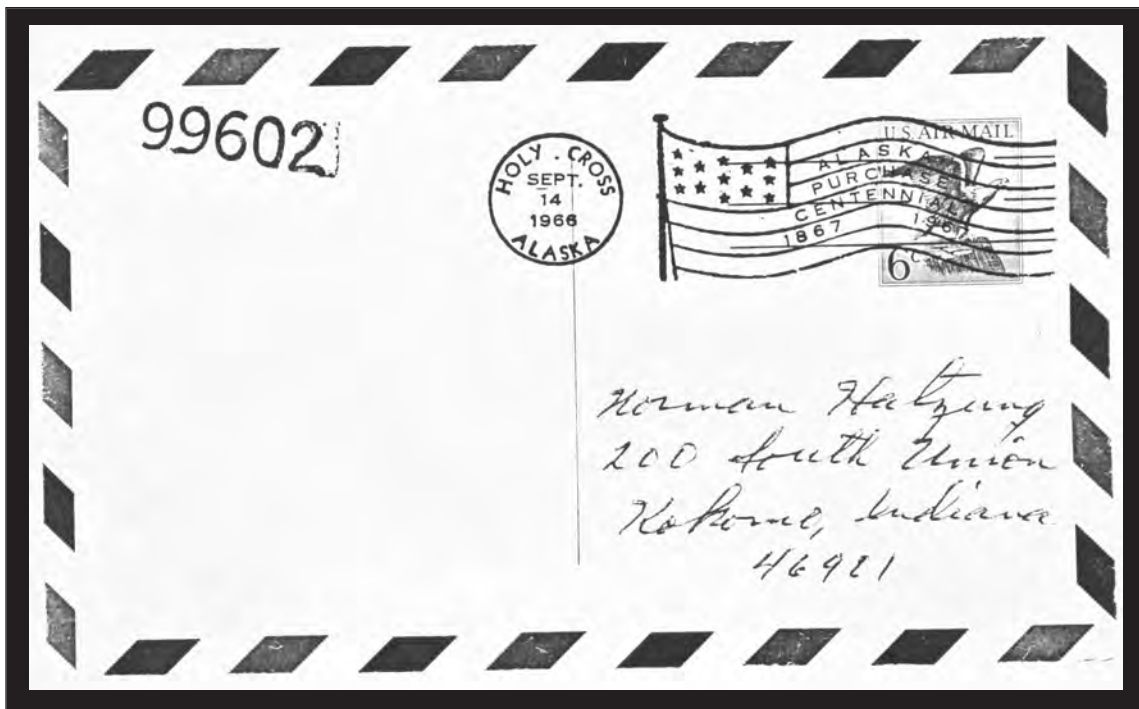 99602
HOLY . CROSS
SEPT.
14
1966
ALASKA
U.S. AIR MAIL
ALASKA
PURCHASE
CENTENNIAL
1867 1967
6c
Norman
200 South Union
Kokomo, Indiana
46921